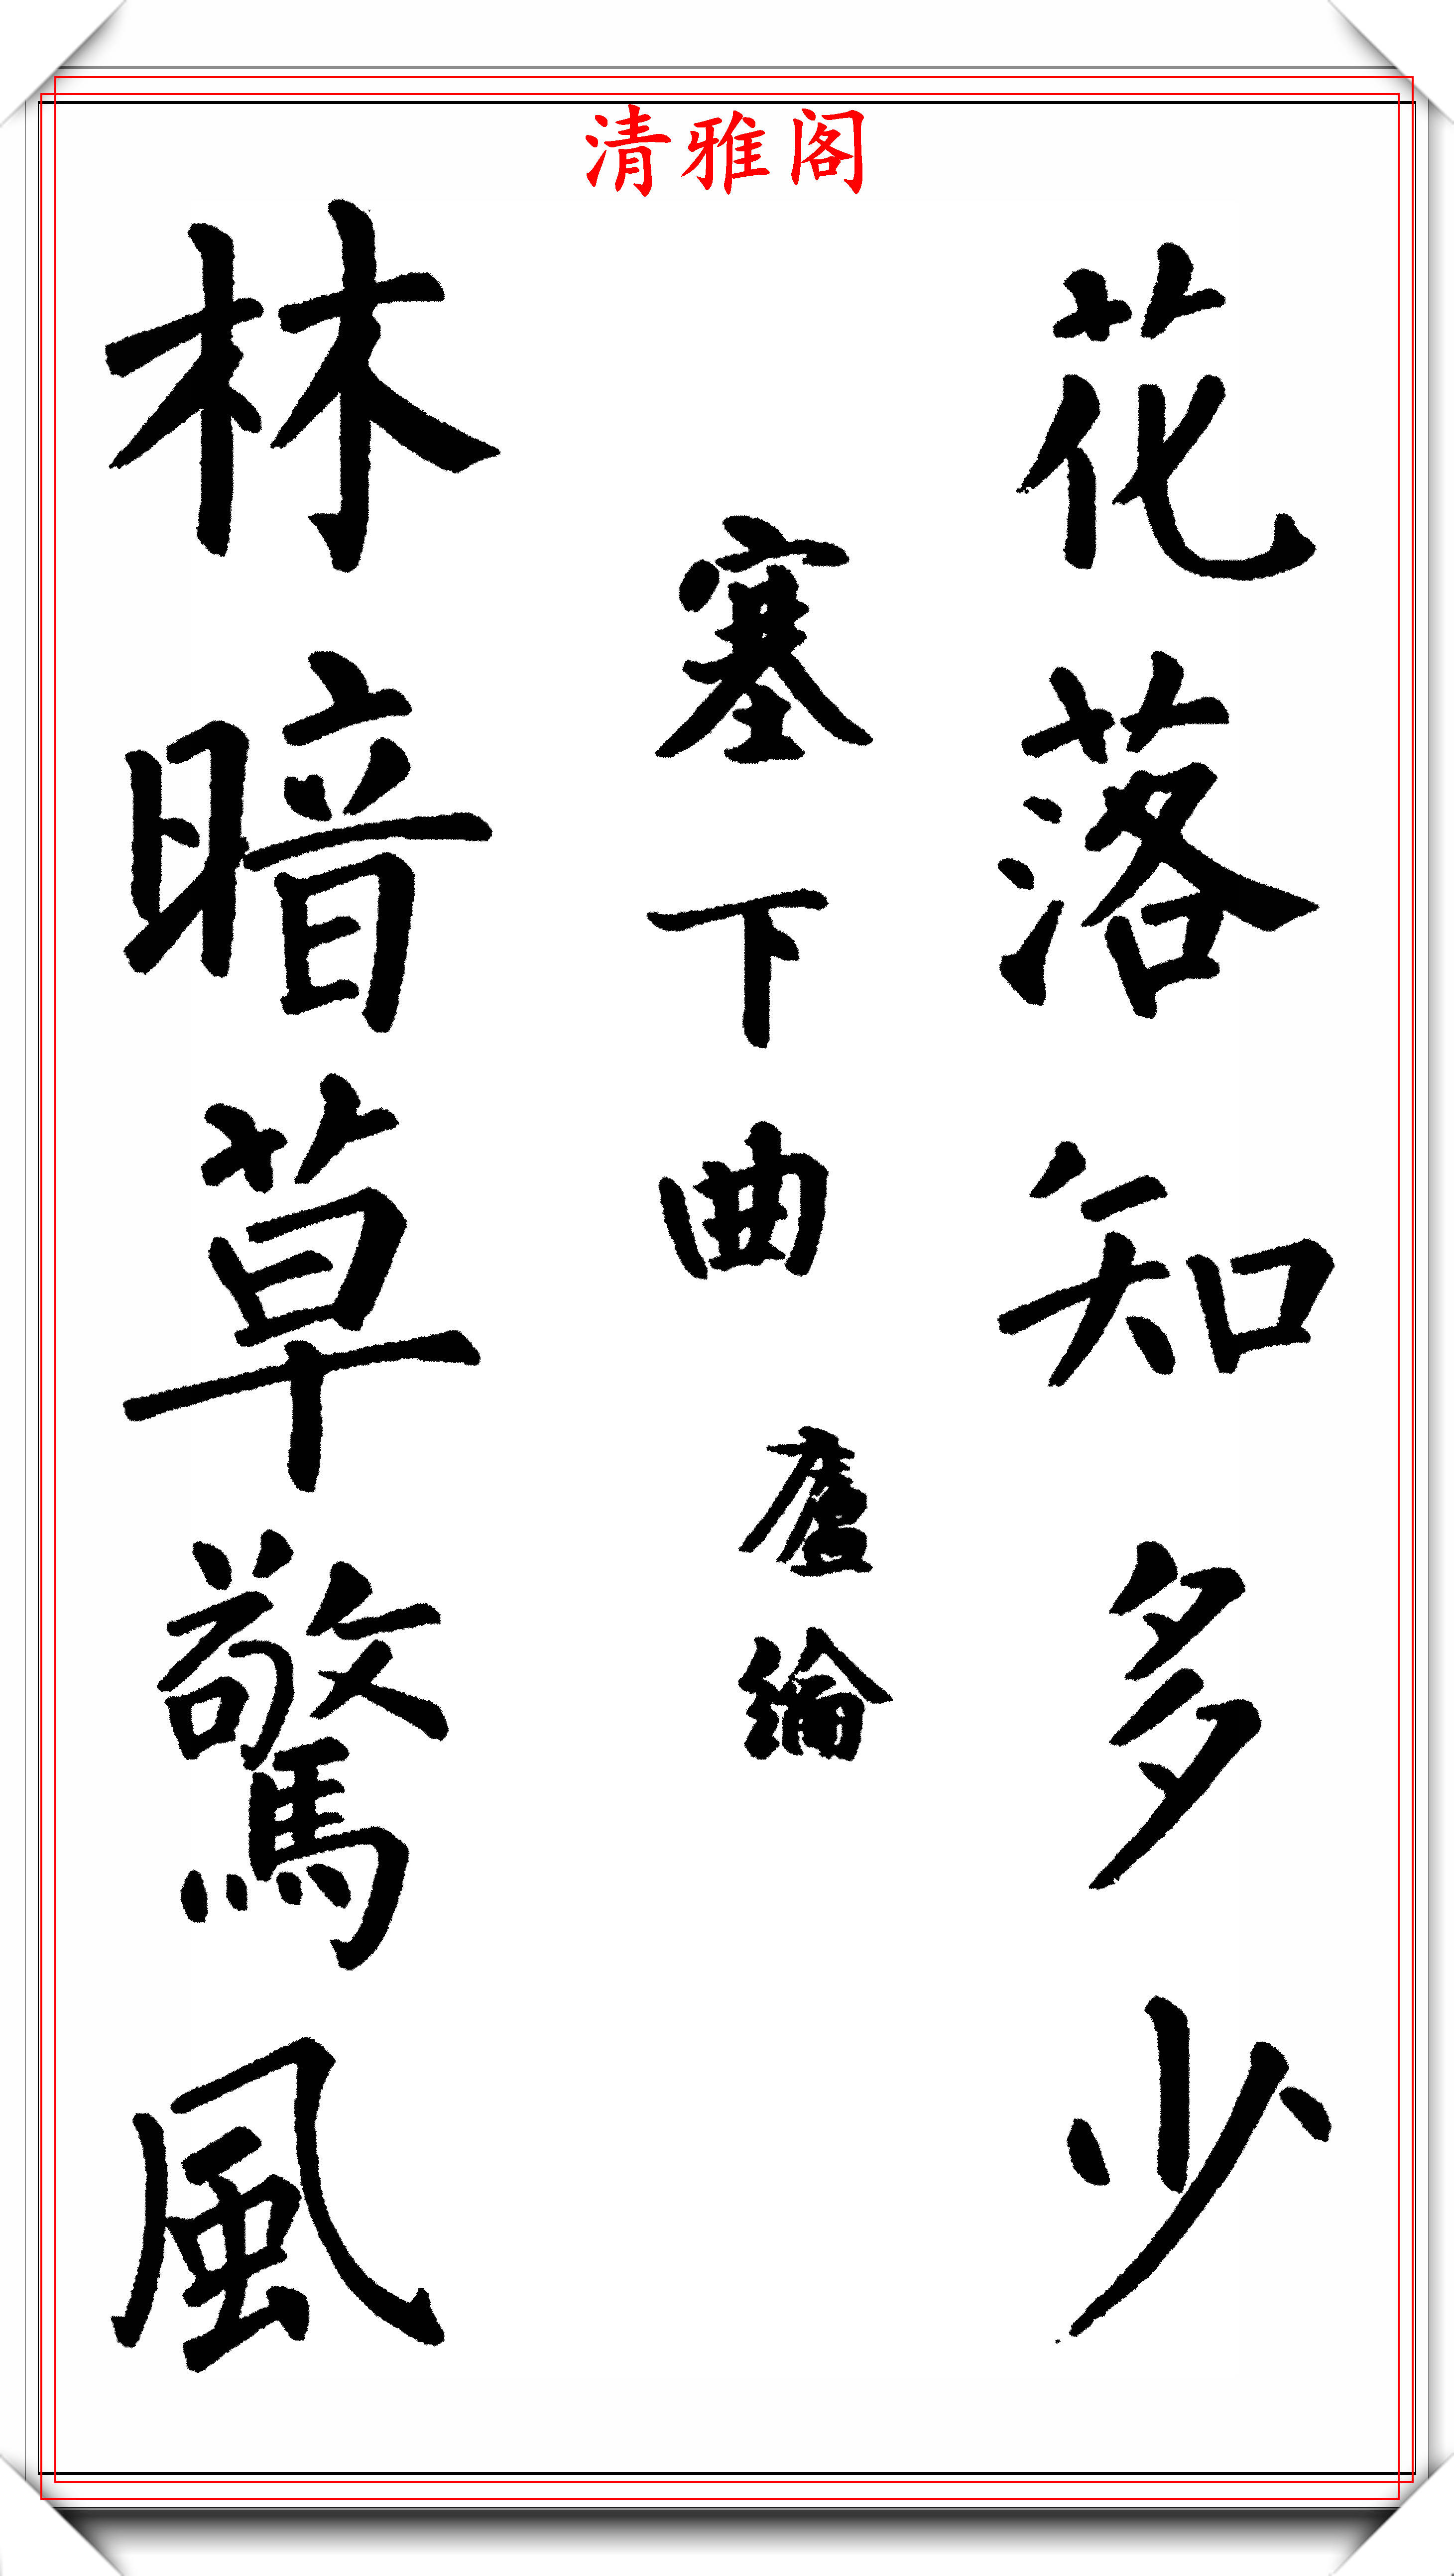 清雅阁
花落知多少
塞下曲
廬綸
林暗草驚風